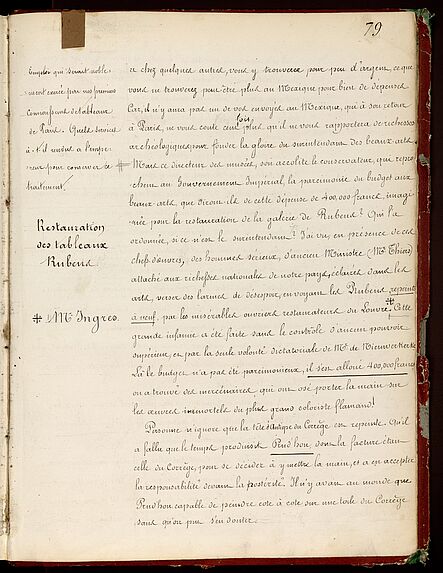 79
Emploi qui serait noble-
ment exercé par nos premiers
Connaisseurs de tableaux
de Paris. Quels services
a-t-il rendus à l'empe-
reur pour conserver ce
traitement.
Restauration
des tableaux
Rubens
‡ Mr Ingres.
et chez quelques autres, vous y trouverez pour peu d'argent, ce que
vous ne trouverez peut-être plus au Mexique pour bien de dépenses
Car, il n'y aura pas un de vos envoyés au Mexique, qui à son retour
à Paris, ne vous coute cent fois plus qu'il ne vous rapportera de richesses
archéologiques pour fonder la gloire du surintendant des beaux arts.
‡ Mais ce directeur des musées, son acolyte le conservateur, que repro-
chent au Gouvernement Impérial, la parcimonie du budget aux
beaux arts, que diront-ils de cette dépense de 400,000 francs, imagi-
née pour la restauration de la galerie de Rubens? Qui l'a
ordonnée, si ce n'est le surintendant? J'ai vu, en présence de ces
chefs d'œuvres, des hommes sérieux, d'ancien Ministre (Mr Thiers)
attaché aux richesses nationales de notre pays, éclairés dans les
arts, verser des larmes de désespoir, en voyant les Rubens repeints
à neuf, par les misérables ouvriers restaurateurs du Louvre ‡. Cette
grande infamie a été faite sans le contrôle d'aucun pouvoir
supérieur, et par la seule volonté dictatoriale de Mr de Nieuwerkerke
Là le budget n'a pas été parcimonieux, il s'est alloué 400,000 francs
on a trouvé des mercenaires, qui ont osé porter la main sur
les œuvres immortels du plus grand coloriste flamand!
Personne n'ignore que la tête d'Antiope du Corrège est repeinte. Qu'il
a fallu que le temps produisit Prud'hon, dont la facture était
celle du Corrège, pour se décider à y mettre la main, et a en accepter
la responsabilité devant la postérité. Il n'y avait au monde que
Prud'hon capable de peindre côte à côte sur une toile du Corrège
sans qu'on pût s'en douter.